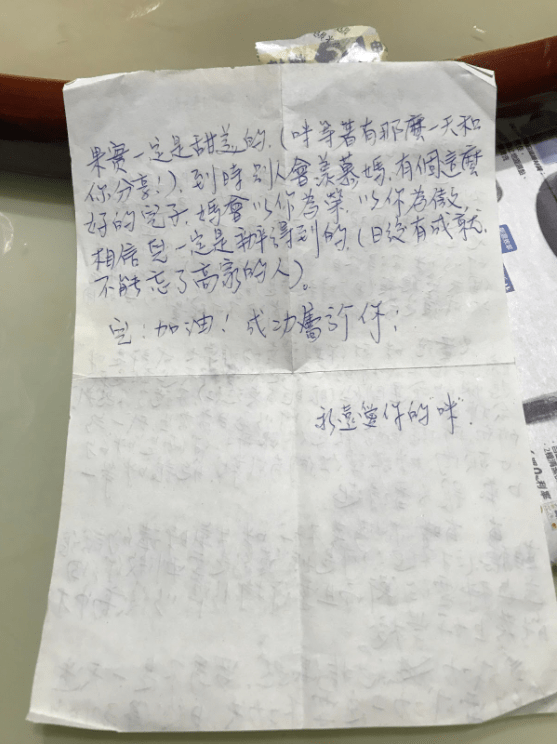 果實一定是甜美的.(咪等著有那麼一天和
你分享!).到時別人會羨慕媽.有個這麼
好的兒子.媽會以你為榮.以你為傲.
相信兒一定是辦得到的.(日後有成就.
不能忘了高家的人)。
兒:加油!成功屬於你!
永遠愛你的"咪".